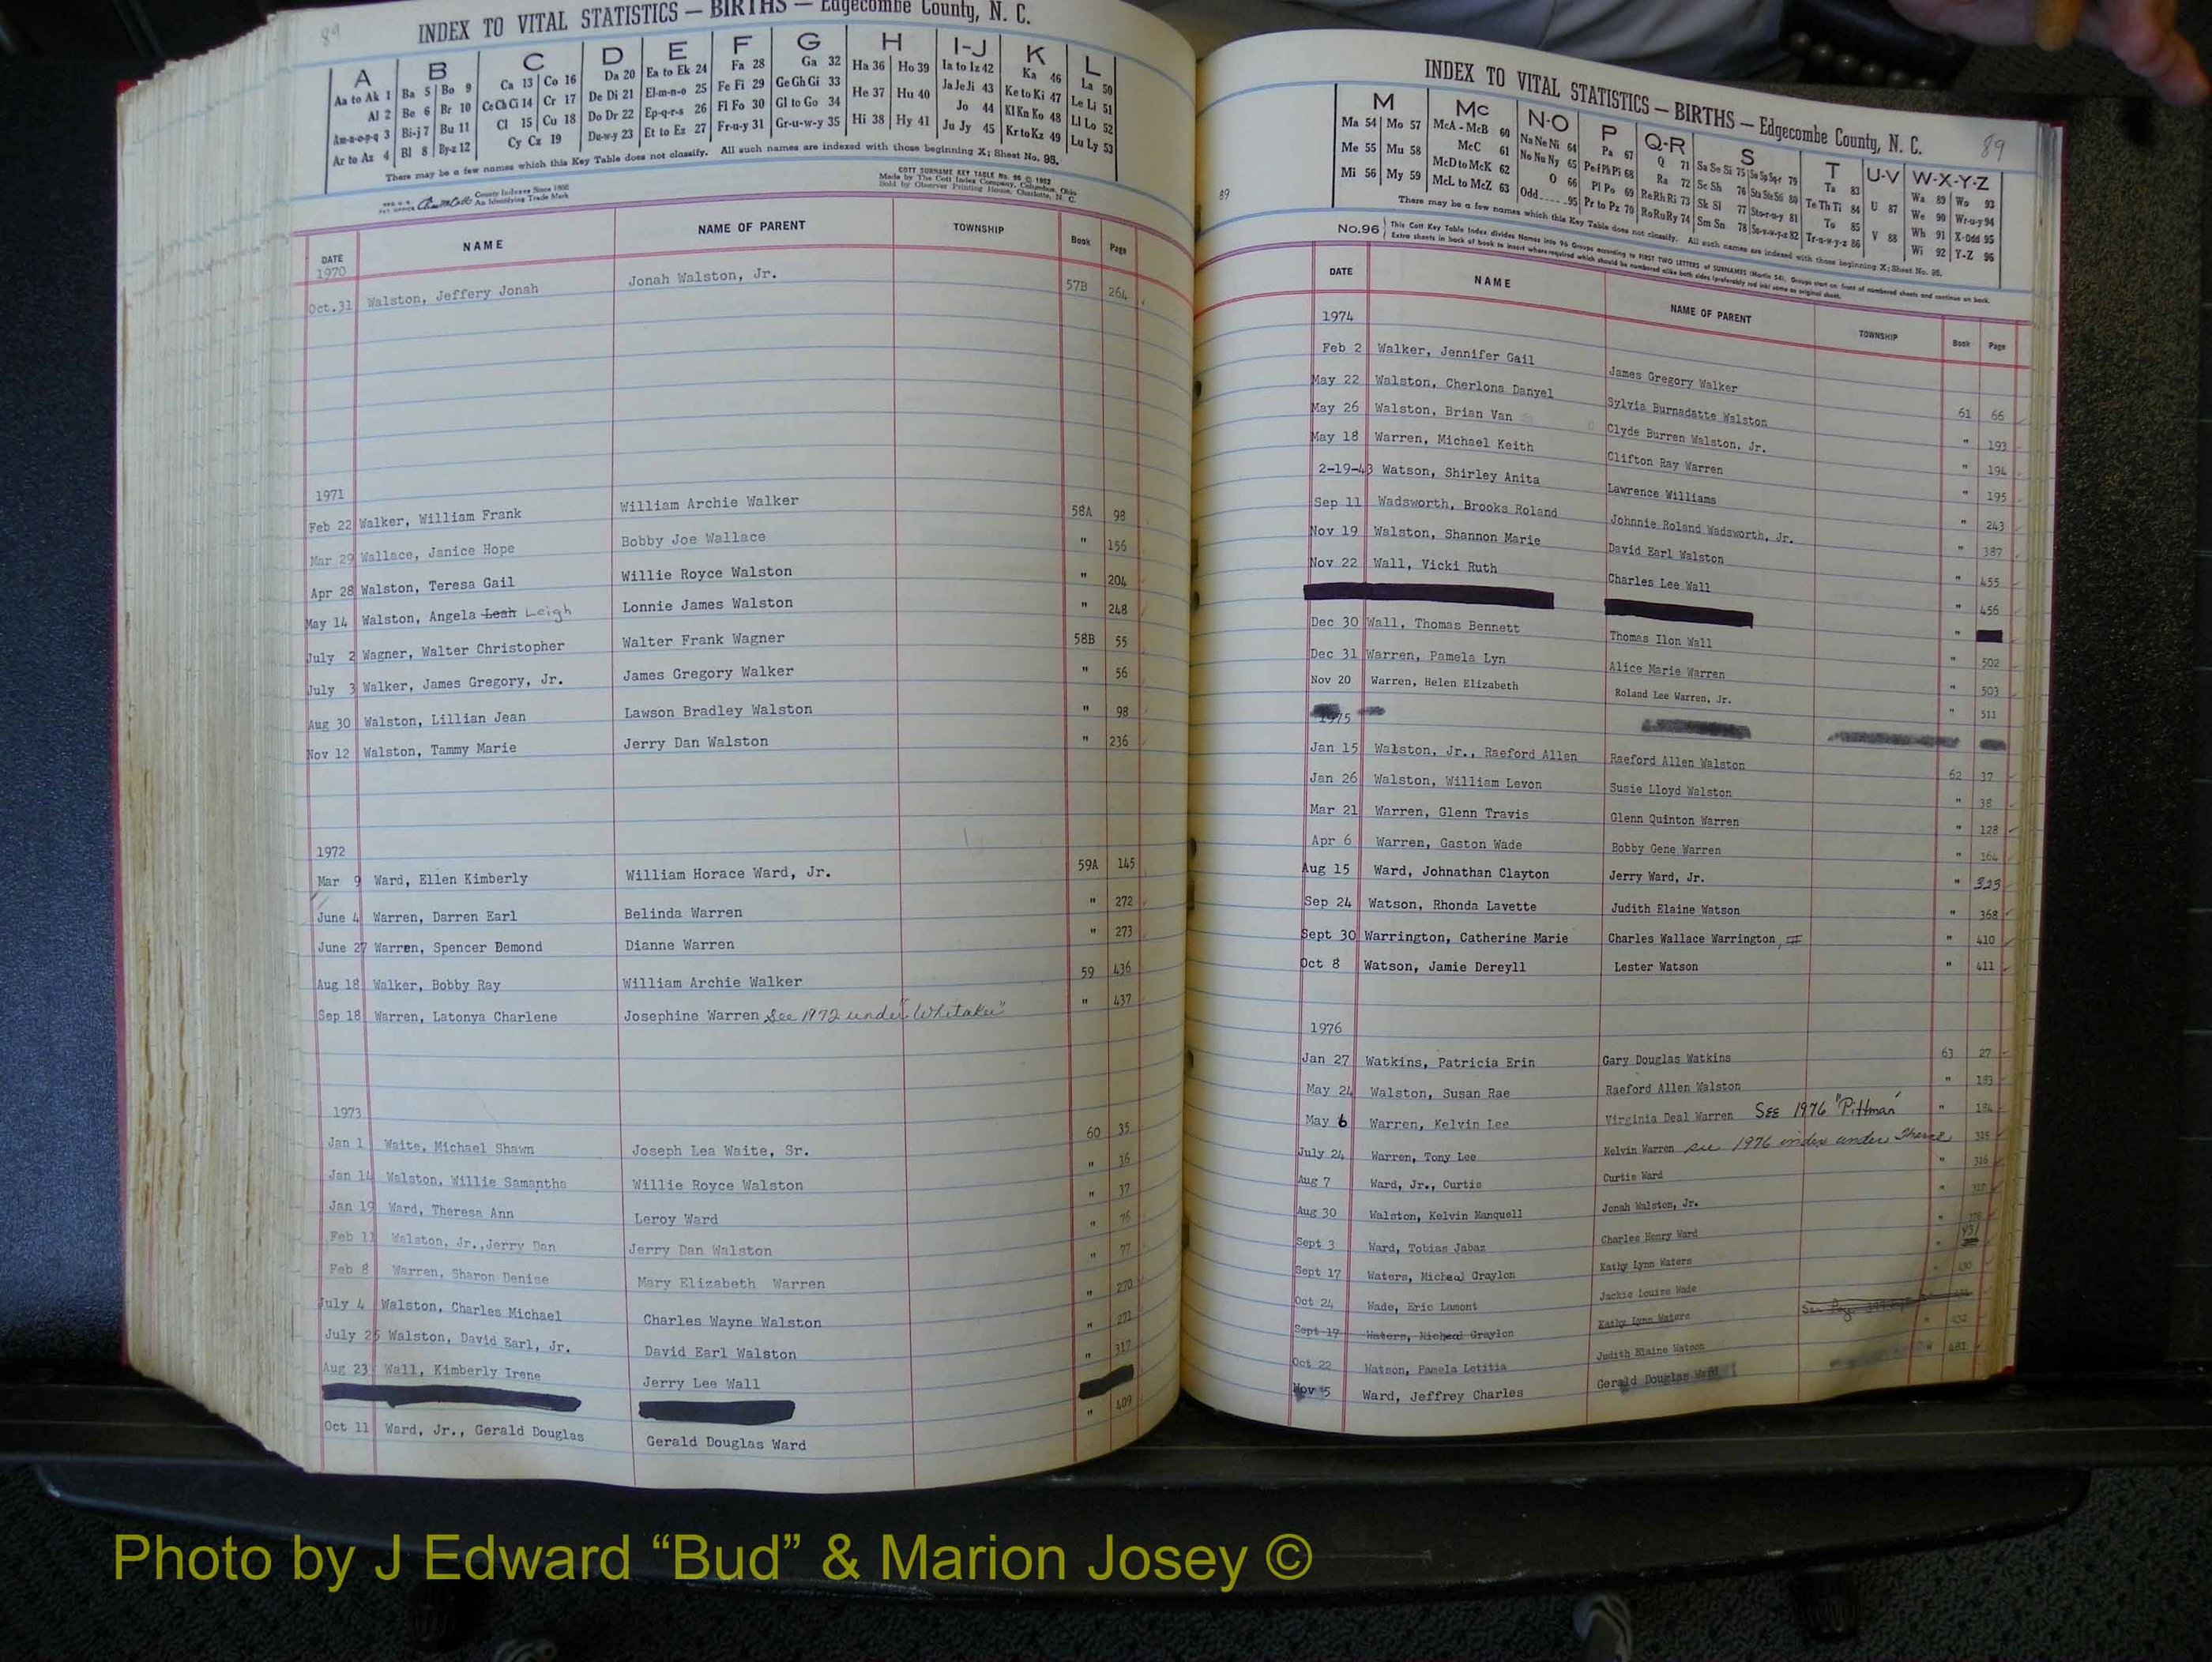 89
INDEX TO VITAL STATISTICS — BIRTHS — Edgecombe County, N. C.
A B C D E F G H I-J K L
Aa to Ak 1 Ba 5 Bo 9 Ca 13 Co 16 Da 20 Ea to Ek 24 Fa 28 Ga 32 Ha 36 Ho 39 Ia to Iz 42 Ka 46 La 50
Al 2 Be 6 Br 10 Ce Ch Ci 14 Cr 17 De Di 21 El-m-n-o 25 Fe Fi 29 Ge Gh Gi 33 He 37 Hu 40 Ja Je Ji 43 Ke to Ki 47 Le Li 51
Am-n-o-p-q 3 Bi-j 7 Bu 11 Cl 15 Cu 18 Do Dr 22 Ep-q-r-s 26 Fl Fo 30 Gl to Go 34 Hi 38 Hy 41 Jo 44 Kl Kn Ko 48 Ll Lo 52
Ar to Az 4 Bl 8 By-z 12 Cy Cz 19 Du-w-y 23 Et to Ez 27 Fr-u-y 31 Gr-u-w-y 35 Ju Jy 45 Kr to Kz 49 Lu Ly 53
There may be a few names which this Key Table does not classify. All such names are indexed with those beginning X; Sheet No. 95.
County Indexes Since 1888
An Identifying Trade Mark
COTT SURNAME KEY TABLE No. 96 © 1952
Made by The Cott Index Company, Columbus, Ohio
Sold by Observer Printing House, Charlotte, N. C.
DATE NAME NAME OF PARENT TOWNSHIP Book Page
1970
Oct.31 Walston, Jeffery Jonah Jonah Walston, Jr. 57B 264
1971
Feb 22 Walker, William Frank William Archie Walker 58A 98
Mar 29 Wallace, Janice Hope Bobby Joe Wallace " 156
Apr 28 Walston, Teresa Gail Willie Royce Walston " 204
May 14 Walston, Angela Leah Leigh Lonnie James Walston " 248
July 2 Wagner, Walter Christopher Walter Frank Wagner 58B 55
July 3 Walker, James Gregory, Jr. James Gregory Walker " 56
Aug 30 Walston, Lillian Jean Lawson Bradley Walston " 98
Nov 12 Walston, Tammy Marie Jerry Dan Walston " 236
1972
Mar 9 Ward, Ellen Kimberly William Horace Ward, Jr. 59A 145
June 4 Warren, Darren Earl Belinda Warren " 272
June 27 Warren, Spencer Demond Dianne Warren " 273
Aug 18 Walker, Bobby Ray William Archie Walker 59 436
Sep 18 Warren, Latonya Charlene Josephine Warren See 1972 under "Whitaker" " 437
1973
Jan 1 Waite, Michael Shawn Joseph Lea Waite, Sr. 60 35
Jan 14 Walston, Willie Samantha Willie Royce Walston " 36
Jan 19 Ward, Theresa Ann Leroy Ward " 37
Feb 11 Walston, Jr.,Jerry Dan Jerry Dan Walston " 76
Feb 8 Warren, Sharon Denise Mary Elizabeth Warren " 77
July 4 Walston, Charles Michael Charles Wayne Walston " 270
July 25 Walston, David Earl, Jr. David Earl Walston " 271
Aug 23 Wall, Kimberly Irene Jerry Lee Wall " 317
Oct 11 Ward, Jr., Gerald Douglas Gerald Douglas Ward " 409
INDEX TO VITAL STATISTICS — BIRTHS — Edgecombe County, N. C. 89
89
M Mc N-O P Q-R S T U-V W-X-Y-Z
Ma 54 Mo 57 McA - McB 60 Na Ne Ni 64 Pa 67 Q 71 Sa Se Si 75 Ta 83 U 87 Wa 89 Wo 93
Me 55 Mu 58 McC 61 No Nu Ny 65 Pe-f Ph Pi 68 Ra 72 Sc Sh 76 Te Th Ti 84 V 88 We 90 Wr-u-y 94
Mi 56 My 59 McD to McK 62 O 66 Pl Po 69 Re Rh Ri 73 Sk Sl 77 To 85 Wh 91 X-Odd 95
McL to McZ 63 Odd 95 Pr to Pz 70 Ro Ru Ry 74 Sm Sn 78 Tr-u-w-y-z 86 Wi 92 Y-Z 96
There may be a few names which this Key Table does not classify. All such names are indexed with those beginning X; Sheet No. 95.
No.96 This Cott Key Table Index divides Names into 96 Groups according to FIRST TWO LETTERS of SURNAMES (Martin 54). Groups start on front of numbered sheets and continue on back.
Extra sheets in back of book to insert where required which should be numbered alike both sides (preferably red ink) same as original sheet.
DATE NAME NAME OF PARENT TOWNSHIP Book Page
1974
Feb 2 Walker, Jennifer Gail James Gregory Walker 61 66
May 22 Walston, Cherlona Danyel Sylvia Burnadatte Walston " 193
May 26 Walston, Brian Van Clyde Burren Walston, Jr. " 194
May 18 Warren, Michael Keith Clifton Ray Warren " 195
2-19-43 Watson, Shirley Anita Lawrence Williams " 243
Sep 11 Wadsworth, Brooks Roland Johnnie Roland Wadsworth, Jr. " 387
Nov 19 Walston, Shannon Marie David Earl Walston " 455
Nov 22 Wall, Vicki Ruth Charles Lee Wall " 456
"
Dec 30 Wall, Thomas Bennett Thomas Ilon Wall " 502
Dec 31 Warren, Pamela Lyn Alice Marie Warren " 503
Nov 20 Warren, Helen Elizabeth Roland Lee Warren, Jr. " 511
1975
Jan 15 Walston, Jr., Raeford Allen Raeford Allen Walston 62 37
Jan 26 Walston, William Levon Susie Lloyd Walston " 38
Mar 21 Warren, Glenn Travis Glenn Quinton Warren " 128
Apr 6 Warren, Gaston Wade Bobby Gene Warren " 164
Aug 15 Ward, Johnathan Clayton Jerry Ward, Jr. " 323
Sep 24 Watson, Rhonda Lavette Judith Elaine Watson " 368
Sept 30 Warrington, Catherine Marie Charles Wallace Warrington, II " 410
Oct 8 Watson, Jamie Dereyll Lester Watson " 411
1976
Jan 27 Watkins, Patricia Erin Gary Douglas Watkins 63 27
May 24 Walston, Susan Rae Raeford Allen Walston " 183
May 6 Warren, Kelvin Lee Virginia Deal Warren SEE 1976 "Pittman" " 184
July 24 Warren, Tony Lee Kelvin Warren see 1976 index under 325
Aug 7 Ward, Jr., Curtis Curtis Ward " 326
Aug 30 Walston, Kelvin Manquell Jonah Walston, Jr. " 327
Sept 3 Ward, Tobias Jabaz Charles Henry Ward "
Sept 17 Waters, Micheal Graylon Kathy Lynn Waters " 431
Oct 24 Wade, Eric Lamont Jackie Louise Wade " 430
Sept 17 Waters, Micheal Graylon Kathy Lynn Waters
Oct 22 Watson, Pamela Letitia Judith Elaine Watson " 432
Nov 5 Ward, Jeffrey Charles Gerald Douglas Ward " 481
Photo by J Edward “Bud” & Marion Josey ©